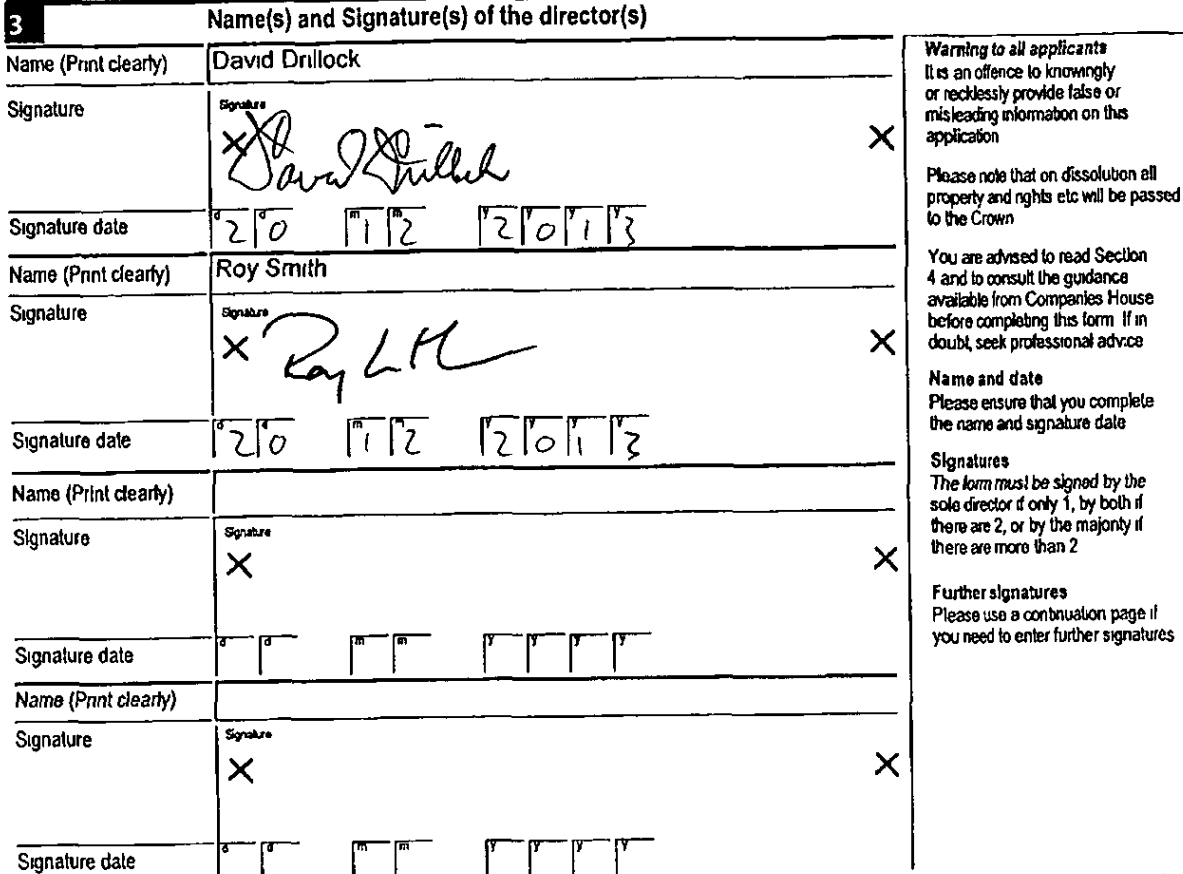 3 Name(s) and Signature(s) of the director(s)
Name (Print clearly) David Drillock
Signature Signature
× David Drillock ×
Signature date d 2 d 0 m 1 m 2 y 2 y 0 y 1 y 3
Name (Print clearly) Roy Smith
Signature Signature
× Roy ×
Signature date d 2 d 0 m 1 m 2 y 2 y 0 y 1 y 3
Name (Print clearly)
Signature Signature
× ×
Signature date d d m m y y y y
Name (Print clearly)
Signature Signature
× ×
Signature date d d m m y y y y
Warning to all applicants
It is an offence to knowingly
or recklessly provide false or
misleading information on this
application
Please note that on dissolution all
property and rights etc will be passed
to the Crown
You are advised to read Section
4 and to consult the guidance
available from Companies House
before completing this form If in
doubt, seek professional advice
Name and date
Please ensure that you complete
the name and signature date
Signatures
The form must be signed by the
sole director if only 1, by both if
there are 2, or by the majority if
there are more than 2
Further signatures
Please use a continuation page if
you need to enter further signatures